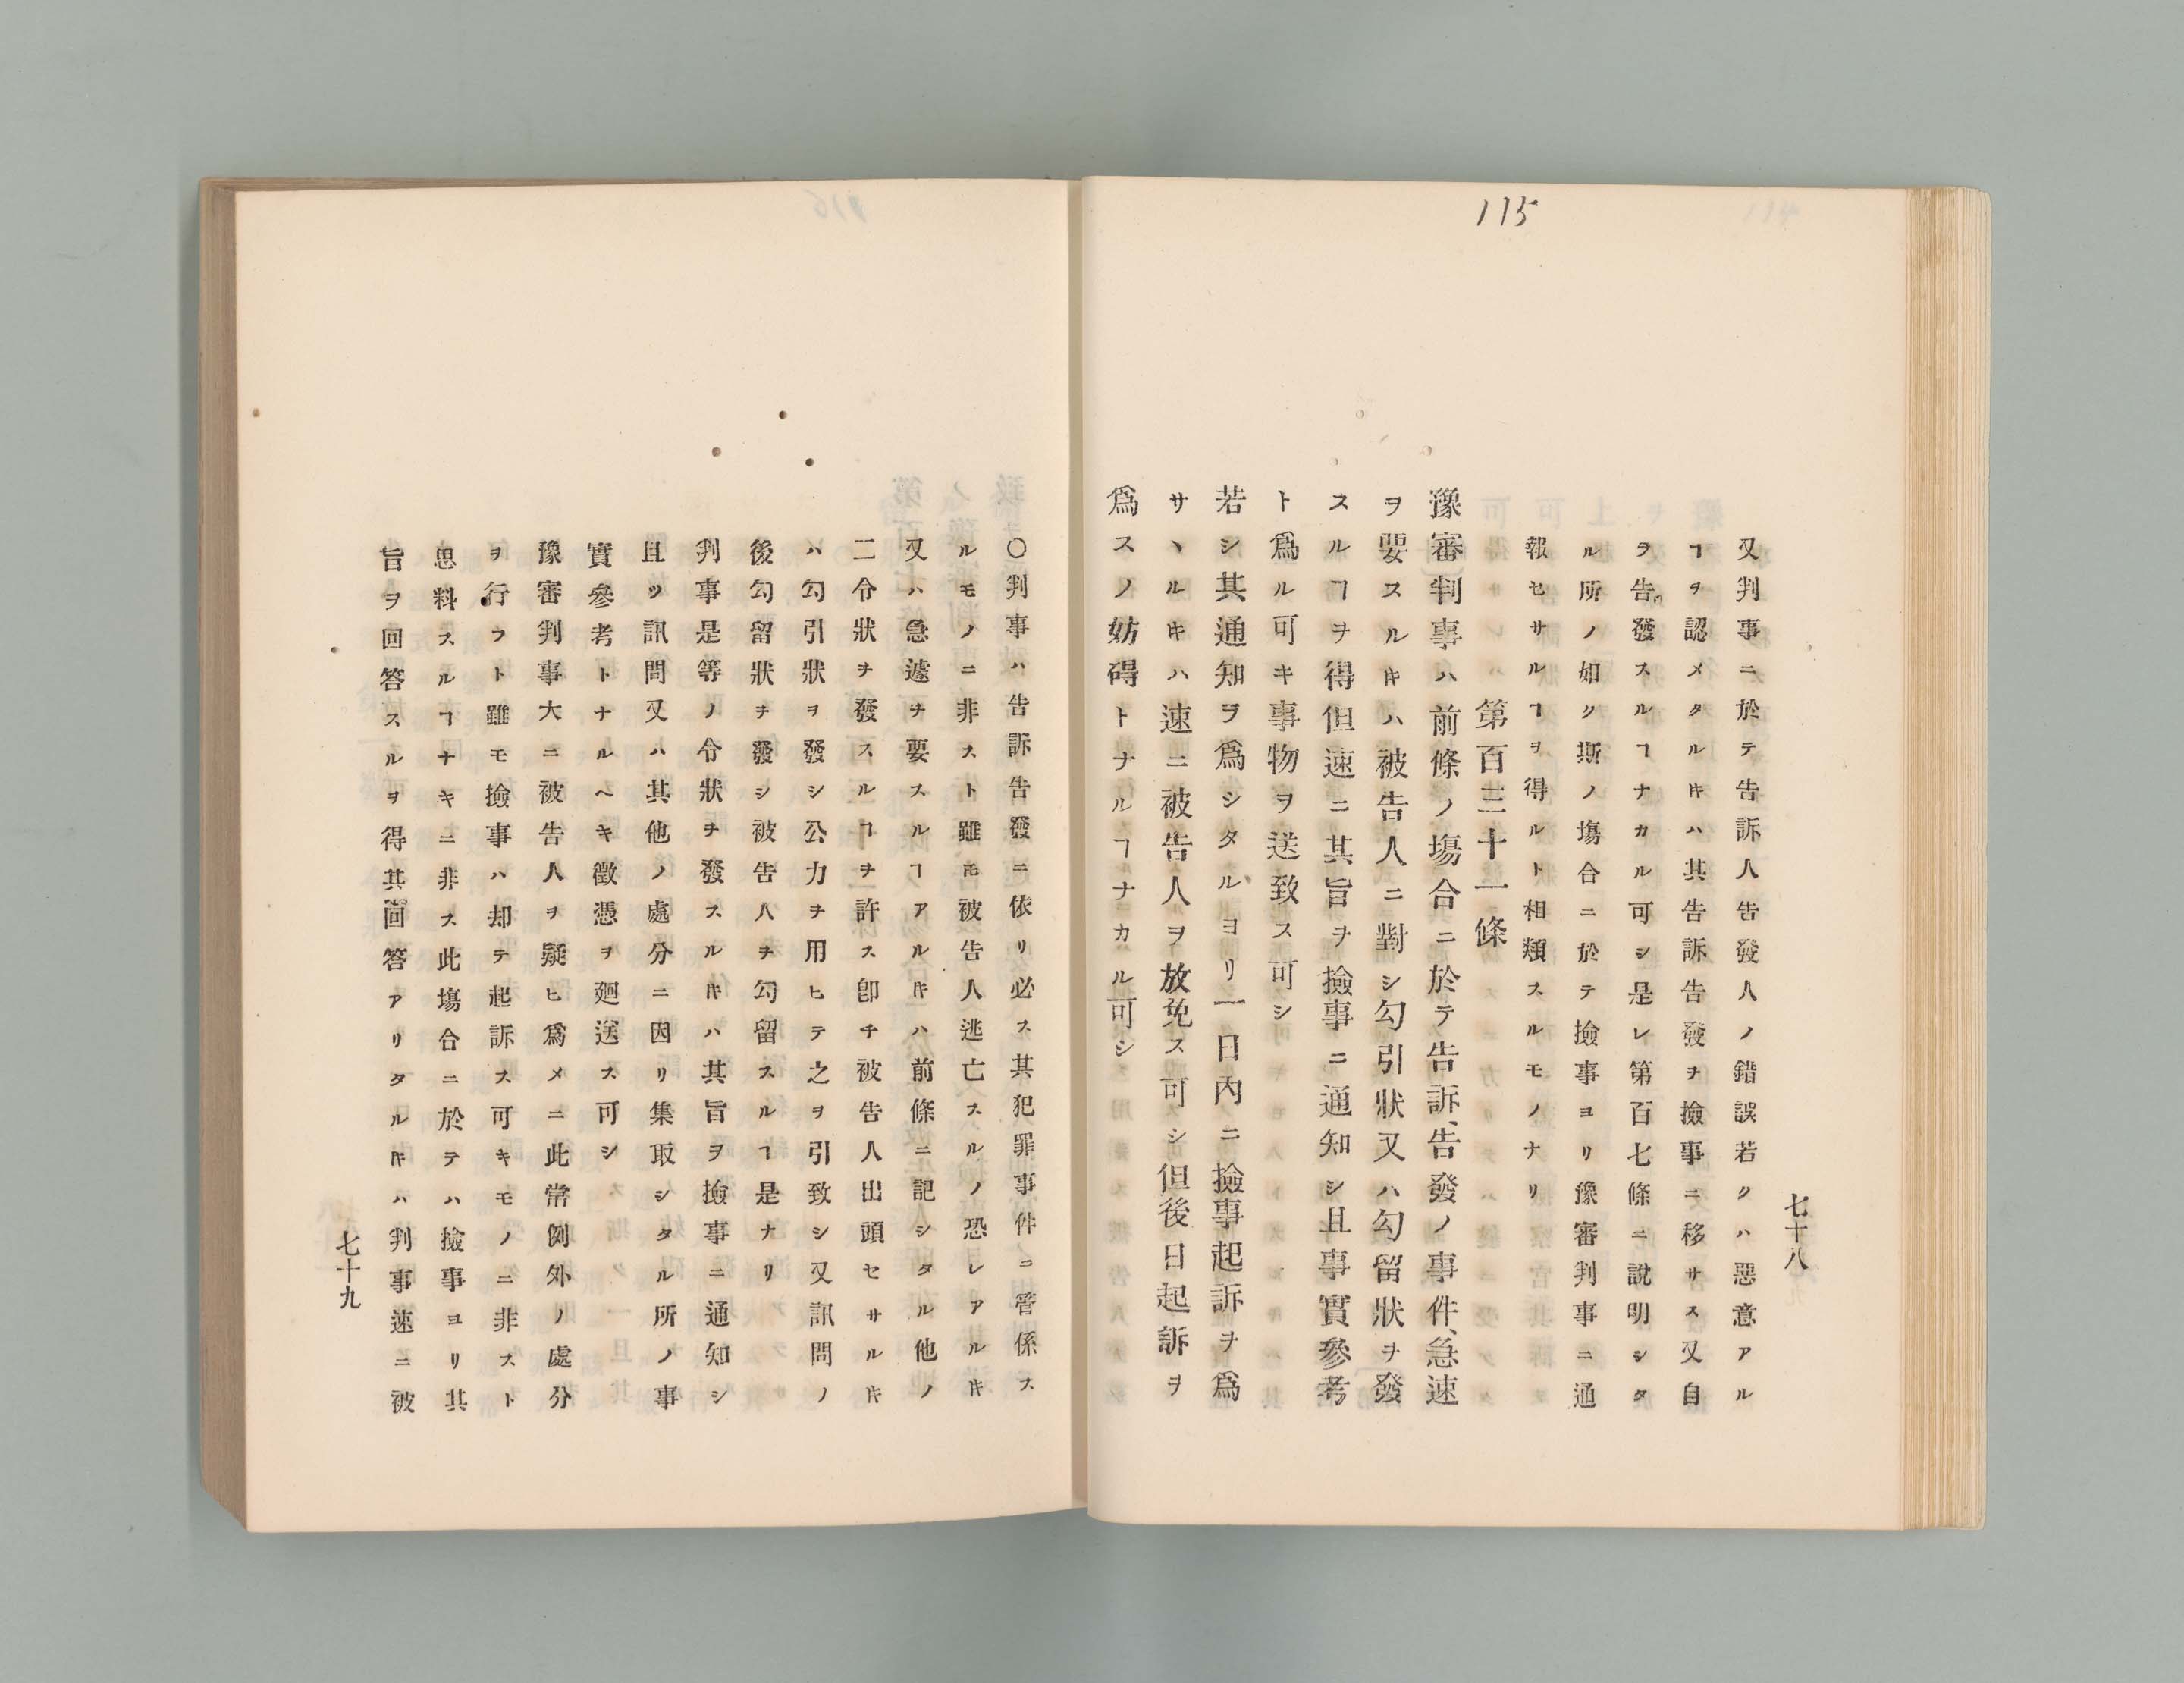 115
七十八
又判事ニ於テ告訴人告發人ノ錯誤若クハ惡意アル
ヿヲ認メタルキハ其告訴告發ヲ撿事ニ移サス又自
ラ告發スルヿナカル可シ是レ第百七條ニ說明シタ
ル所ノ如ク斯ノ塲合ニ於テ撿事ヨリ豫審判事ニ通
報セサルヿヲ得ルト相類スルモノナリ
第百三十一條
豫審判事ハ前條ノ塲合ニ於テ告訴、告發ノ事件、急速
ヲ要スルキハ被告人ニ對シ勾引狀又ハ勾留狀ヲ發
スルヿヲ得但速ニ其旨ヲ撿事ニ通知シ且事實參考
ト爲ル可キ事物ヲ送致ス可シ
若シ其通知ヲ爲シタルヨリ一日內ニ撿事起訴ヲ爲
サヽルキハ速ニ被告人ヲ放免ス可シ但後日起訴ヲ
爲スノ妨碍トナルヿナカル可シ
〇判事ハ告訴告發ニ依リ必ス其犯罪事件ニ管係ス
ルモノニ非スト雖𪜈被告人逃亡スルノ恐レアルキ
又ハ急遽ヲ要スルヿアルキハ前條ニ記シタル他ノ
二令狀ヲ發スルヿヲ許ス卽チ被告人出頭セサルキ
ハ勾引狀ヲ發シ公力ヲ用ヒテ之ヲ引致シ又訊問ノ
後勾留狀ヲ發シ被告人ヲ勾留スルヿ是ナリ
判事是等ノ令狀ヲ發スルキハ其旨ヲ撿事ニ通知シ
且ツ訊問又ハ其他ノ處分ニ因リ集取シタル所ノ事
實參考トナルヘキ徵憑ヲ廻送ス可シ
豫審判事大ニ被告人ヲ疑ヒ爲メニ此常例外ノ處分
ヲ行フト雖モ撿事ハ却テ起訴ス可キモノニ非スト
思料スルヿナキニ非ス此塲合ニ於テハ撿事ヨリ其
旨ヲ回答スルヲ得其回答アリタルキハ判事速ニ被
七十九